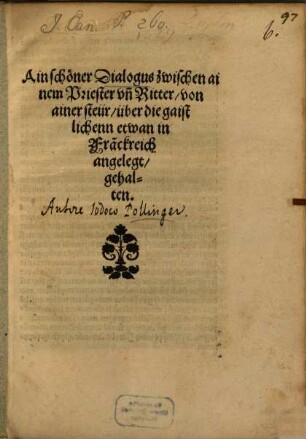 J. Can. P. 269.
97
6.
Ain schöner Dialogus zwischen ai
nem Priester vñ Ritter/ von
ainer steür/ über die gaist
lichenn etwan in
Frãckreich
angelegt/
gehal-
ten.
Autore Iodoco Pollinger.